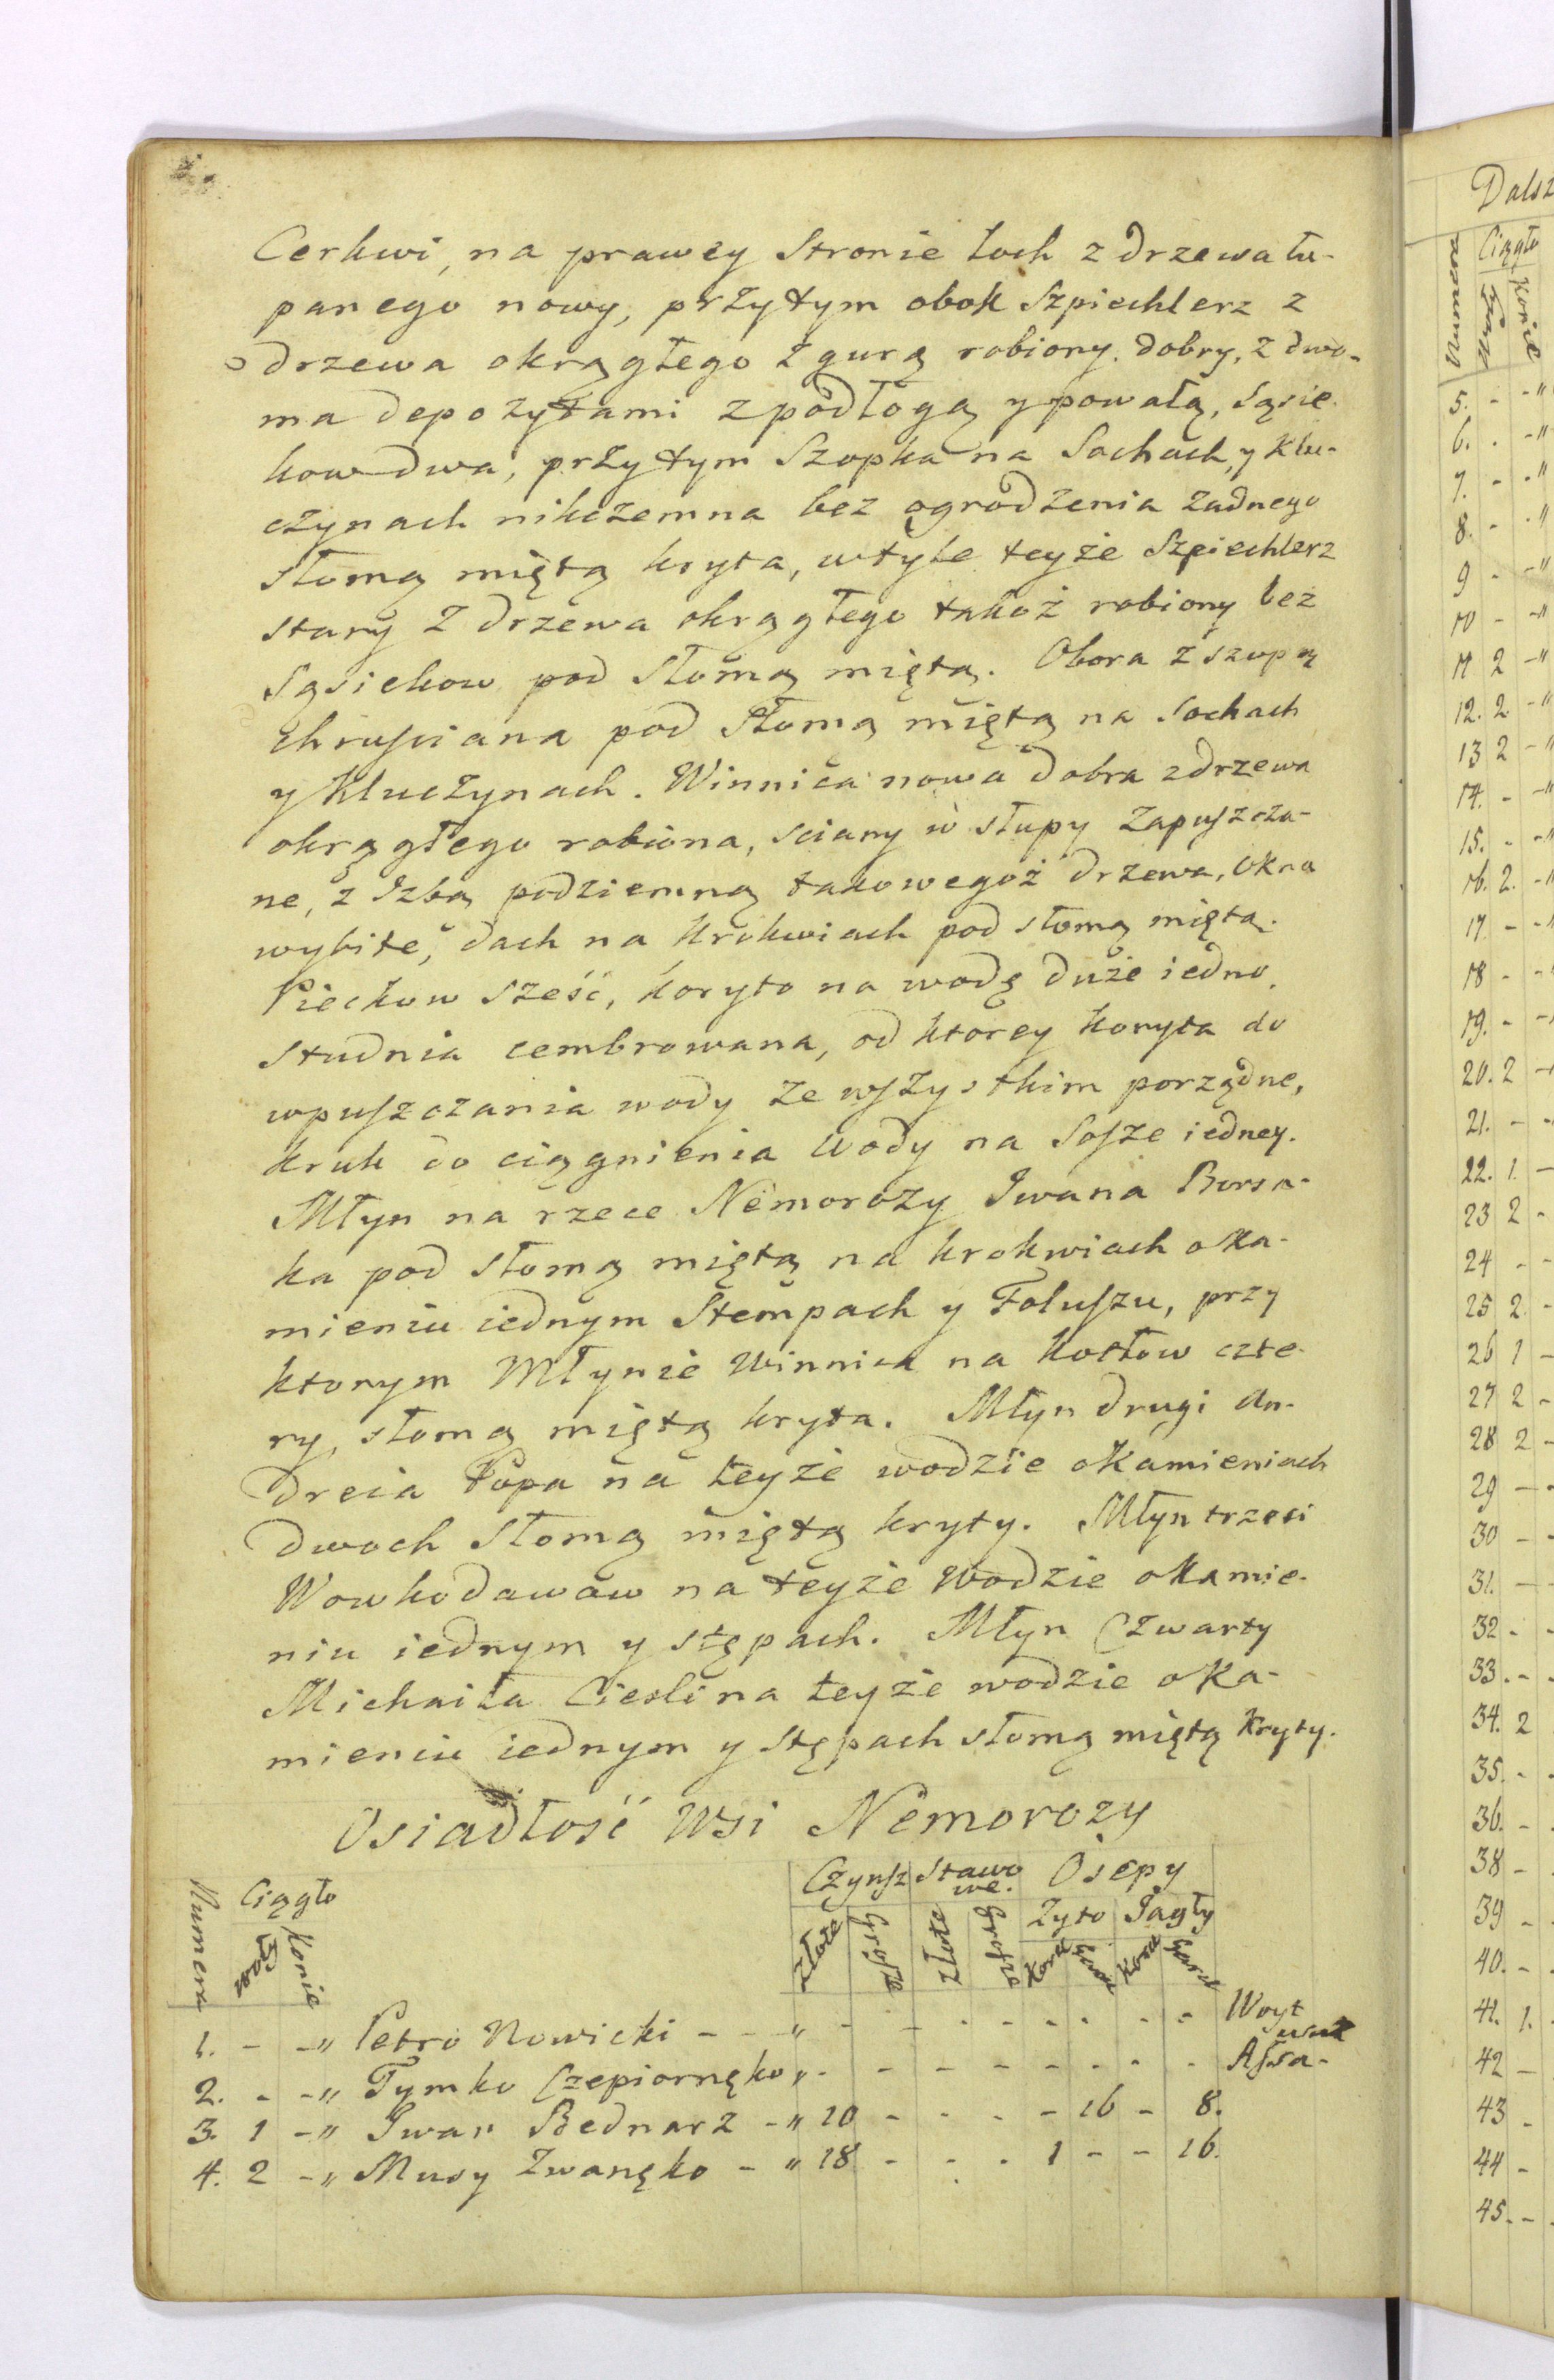 Cerkwi, na prawey Stronie loch z drzewa łu-
panego nowy, przytym obok Szpiechlerz z
drzewa okrągłego z gurą robiony dobry, z dwo-
ma depozytami z podłogą y powałą, Sąsie-
kow dwa, przytym Szopka na Sochach, y klu-
czynach nikczemna bez ogrodzenia żadnego
słomą miętą kryta, w tyle teyże Szpiechlerz
stary z drzewa okrągłego takoż robiony bez
Sąsiekow pod Słomą miętą. Obora z szopą
Chruściana pod Słomą miętą na Sochach
y Kluczynach. Winnica nowa dobra z drzewa
okrągłego robiona, sciany w słupy zapuszcza-
ne, z Izbą podziemną takowegoż drzewa, okna
wybite, dach na krokwiach pod słomą miętą.
Pieckow sześć, koryto na wodę duże iedno,
studnia cembrowana, od ktorey koryta do
wpuszczania wody ze wszystkim porządne,
kruk do ciągnienia Wody na Sosze iedney.
Młyn na rzece Nemorozy Iwana Borsa-
ka pod słomą miętą na krokwiach o Ka-
mieniu iednym Stempach y Foluszu, przy
ktorym Młynie Winnica na kotłow czte-
ry, słomą miętą kryta. Młyn drugi An-
dreia Popa na teyże wodzie o Kamieniach
dwoch Słomą miętą kryty. Młyn trzeci
Wowkodawow na teyże Wodzie o Kamie-
niu iednym y stępach. Młyn Czwarty
Michaiła Cieśli na teyże wodzie o Ka-
mieniu iednym y Stępach słomą miętą Kryty.
Osiadłość Wsi Nemorozy
Numera Ciągło Woły Konie Czynsz Stawowe. Osepy
Złote Grosze Złote Grosze Zyto Jagły
Korce Garce Korce Garce
1. - -" Petro Nowicki - - " - - - - - - - - Woyt
2. - -" Tymko Czepiornęko " - - - - - - - - Assa-
uł
3. 1 -" Iwan Bednarz - " 10 - - - - 16 - 8.
4. 2 -" Musy Zwanęko - " 18 - - - 1 - - 16.
Dalsz
Numera Ciągło Woły Konie
5. - -"
6. - -"
7. - -"
8. - -"
9 - -"
10 - -"
11 2 -"
12. 2 -"
13 2 -"
14. - -"
15. - -"
16. 2. -"
17 - -"
18 - -
19. - -
20. 2 -
21. - -
22. 1. -
23 2 -
24 - -
25 2 -
26 1 -
27 2 -
28 2 -
29 - -
30 - -
31. - -
32 - -
33. - -
34. 2
35. - -
36. -
38 -
39 -
40. -
41. 1.
42 -
43 -
44 -
45. -